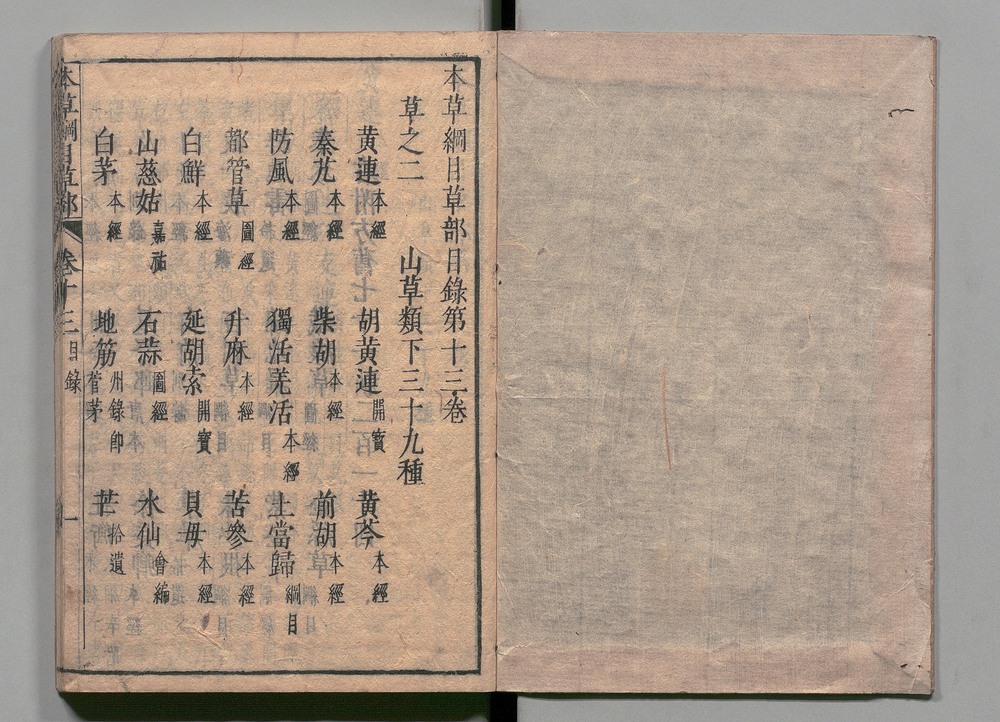 本草綱目草部目錄第十三卷
草之二　山草類下三十九種
黃連本經　胡黃連開寶　黃芩本經
秦艽本經　柴胡本經　前胡本經
防風本經　獨活羌活本經　土當歸綱目
都管草圖經　升麻本經　苦參本經
白鮮本經　延胡索開寶　貝母本經
山慈姑嘉祐　石蒜圖經　水仙會編
白茅本經　地筋別錄即菅茅　芒拾遺
本草綱目草部　卷十三目錄　一